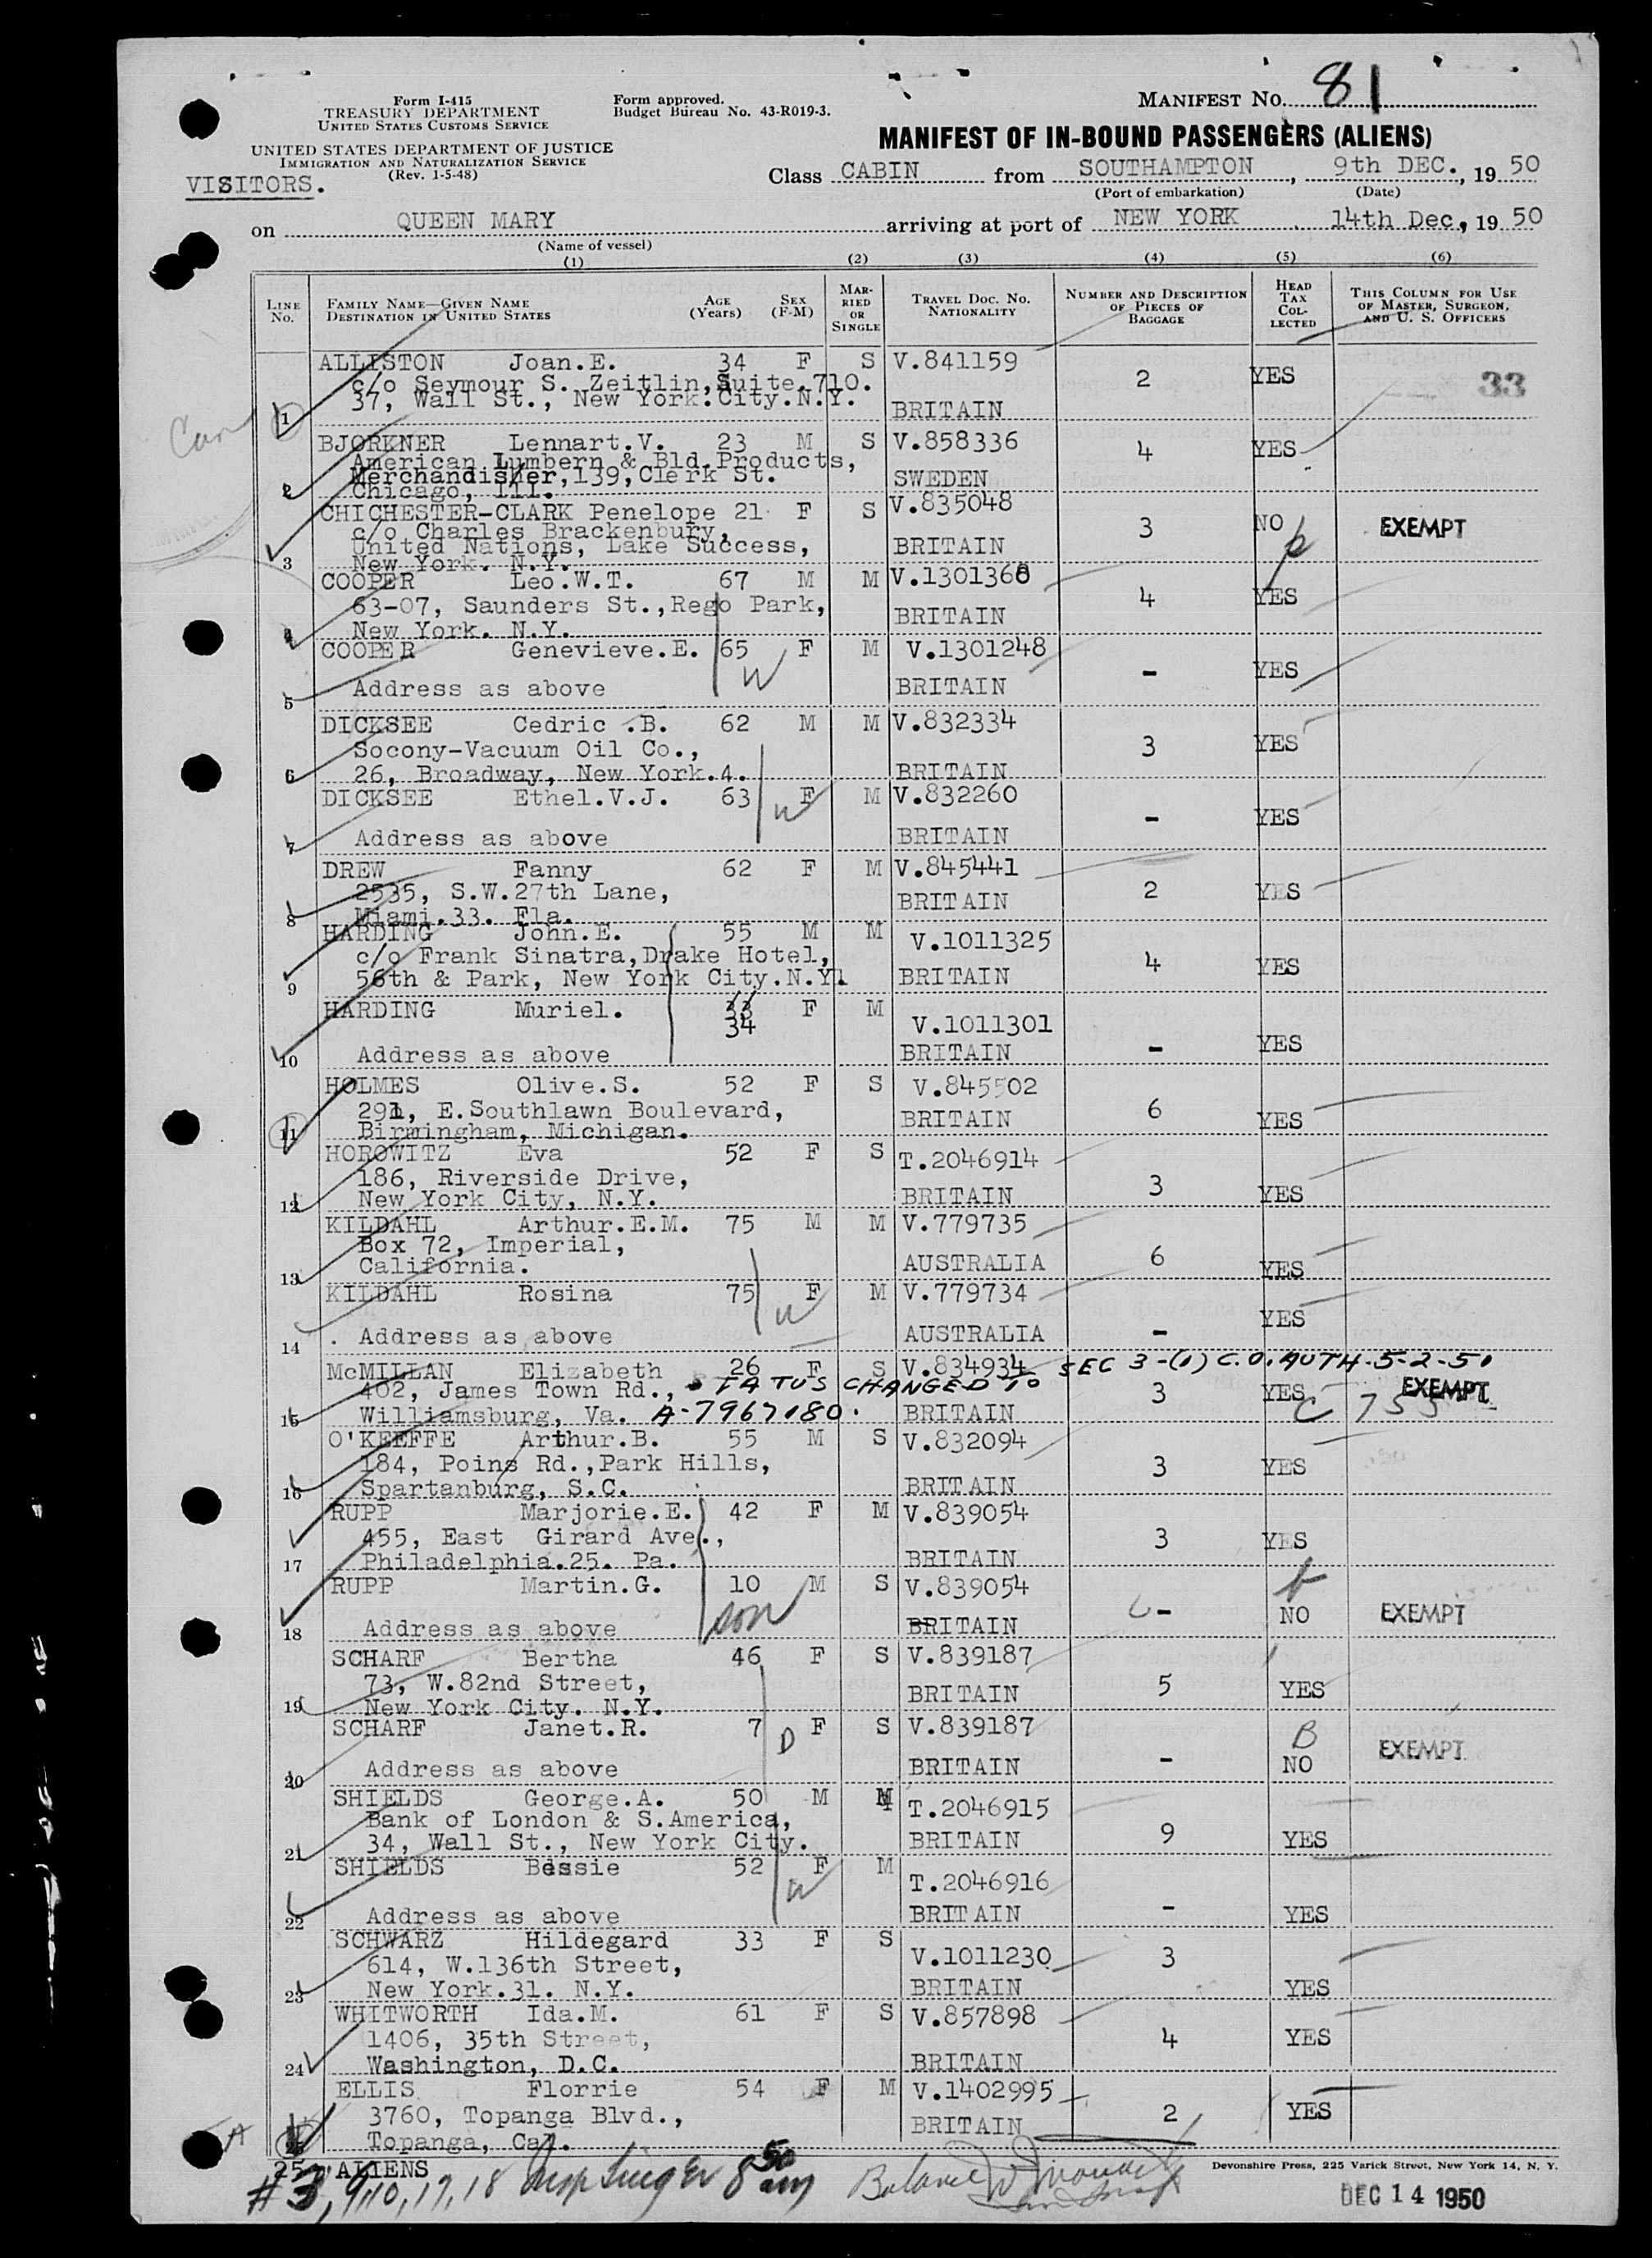 MANIFEST NO. 81
Form I-415
TREASURY DEPARTMENT
UNITED STATES CUSTOMS SERVICE
Form approved.
Budget Bureau No. 43-R019-3.
UNITED STATES DEPARTMENT OF JUSTICE
IMMIGRATION AND NATURALIZATION SERVICE
(Rev. 1-5-48)
MANIFEST OF IN-BOUND PASSENGERS (ALIENS)
VISITORS.
Class CABIN from SOUTHAMPTON, 9th DEC., 19 50
(Port of embarkation) (Date)
on QUEEN MARY arriving at port of NEW YORK 14th Dec, 19 50
(Name of vessel)
(1) (2) (3) (4) (5) (6)
LINE NO. FAMILY NAME—GIVEN NAME DESTINATION IN UNITED STATES AGE (Years) SEX (F-M) MARRIED OR SINGLE TRAVEL DOC. NO. NATIONALITY NUMBER AND DESCRIPTION OF PIECES OF BAGGAGE HEAD TAX COLLECTED THIS COLUMN FOR USE OF MASTER, SURGEON, AND U. S. OFFICERS
ALLISTON Joan.E. 34 F S V.841159
c/o Seymour S. Zeitlin, Suite.710. 2 YES 33
37, Wall St., New York.City.N.Y.
1 BRITAIN
BJORKNER Lennart.V. 23 M S V.858336
American Lumbern & Bld.Products, 4 YES
Merchandiser,139,Clerk St. SWEDEN
2 Chicago, Ill.
CHICHESTER-CLARK Penelope 21 F S V.835048
c/o Charles Brackenbury, 3 NO EXEMPT
United Nations, Lake Success, BRITAIN
3 New York. N.Y.
COOPER Leo.W.T. 67 M M V.1301368
63-07, Saunders St.,Rego Park, 4 YES
BRITAIN
4 New York. N.Y.
COOPER Genevieve.E. 65 F M V.1301248
W - YES
5 Address as above BRITAIN
DICKSEE Cedric .B. 62 M M V.832334
Socony-Vacuum Oil Co., 3 YES
6 26, Broadway, New York.4. BRITAIN
DICKSEE Ethel.V.J. 63 F M V.832260
W - YES
7 Address as above BRITAIN
DREW Fanny 62 F M V.845441
2535, S.W.27th Lane, BRITAIN 2 YES
8 Miami.33. Fla.
HARDING John.E. 55 M M V.1011325
c/o Frank Sinatra,Drake Hotel, 4 YES
9 56th & Park, New York City.N.Y. BRITAIN
HARDING Muriel. 33 F M
34 V.1011301
10 Address as above BRITAIN - YES
HOLMES Olive.S. 52 F S V.845502
291, E.Southlawn Boulevard, BRITAIN 6 YES
11 Birmingham, Michigan.
HOROWITZ Eva 52 F S T.2046914
186, Riverside Drive, 3 YES
12 New York City, N.Y. BRITAIN
KILDAHL Arthur.E.M. 75 M M V.779735
Box 72, Imperial, 6 YES
13 California. AUSTRALIA
KILDAHL Rosina 75 F M V.779734
W YES
14 . Address as above AUSTRALIA -
McMILLAN Elizabeth 26 F S V.834934 SEC 3-(1) C.O. AUTH. 5-2-51
402, James Town Rd., STATUS CHANGED TO 3 YES EXEMPT
15 Williamsburg, Va. A-7967180. BRITAIN
O'KEEFFE Arthur.B. 55 M S V.832094
184, Poins Rd.,Park Hills, 3 YES
16 Spartanburg, S.C. BRITAIN
RUPP Marjorie.E. 42 F M V.839054
455, East Girard Ave., 3 YES
17 Philadelphia.25. Pa. BRITAIN
RUPP Martin.G. 10 M S V.839054
son - NO EXEMPT
18 Address as above BRITAIN
SCHARF Bertha 46 F S V.839187
73, W.82nd Street, BRITAIN 5 YES
19 New York City. N.Y.
SCHARF Janet.R. 7 F S V.839187
D B EXEMPT
20 Address as above BRITAIN - NO
SHIELDS George.A. 50 M M T.2046915
Bank of London & S.America,
21 34, Wall St., New York City. BRITAIN 9 YES
SHIELDS Bessie 52 F M T.2046916
W
22 Address as above BRITAIN - YES
SCHWARZ Hildegard 33 F S
614, W.136th Street, V.1011230 3
23 New York.31. N.Y. BRITAIN YES
WHITWORTH Ida.M. 61 F S V.857898
1406, 35th Street, 4 YES
24 Washington, D.C. BRITAIN
ELLIS Florrie 54 F M V.1402995
3760, Topanga Blvd., BRITAIN 2 YES
25 Topanga, Cal.
25 ALIENS
Devonshire Press, 225 Varick Street, New York 14, N. Y.
#3, 9, 10, 17, 18 Insp 8 50 am Balance
DEC 14 1950